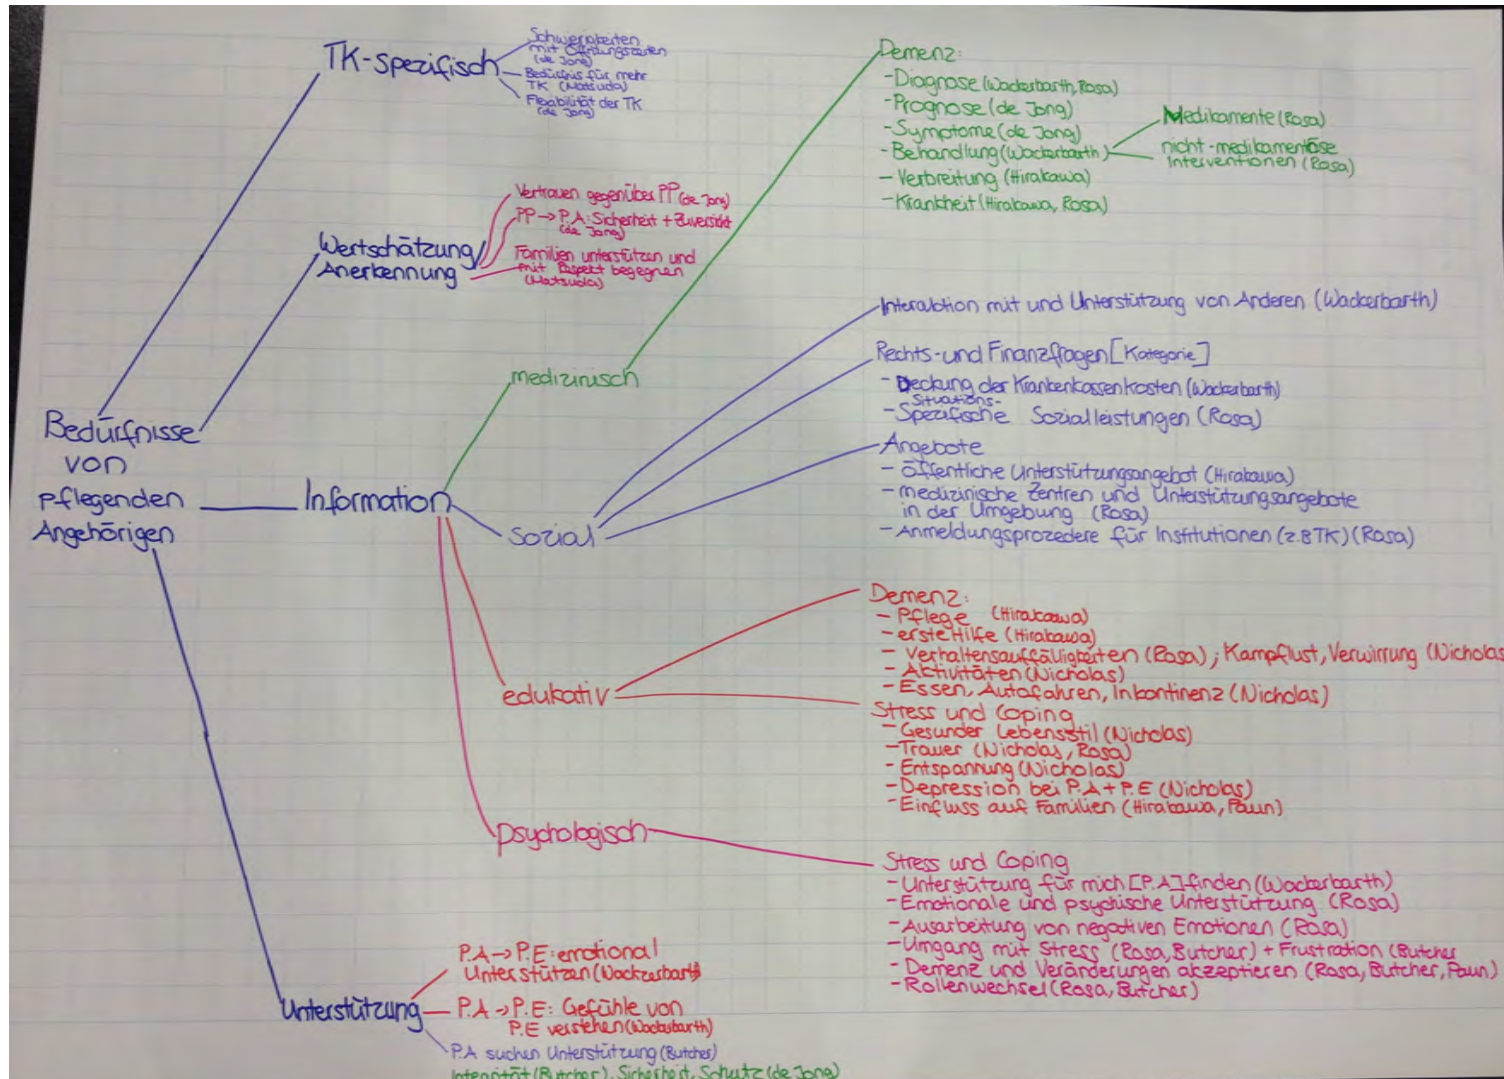 TK-spezifisch
Schwierigkeiten
mit Öffnungszeiten
(de Jong)
Bedürfnis für mehr
TK (Matsuda)
Flexibilität der TK
(de Jong)
Wertschätzung
Anerkennung
Vertrauen gegenüber PP (de Jong)
PP → P.A: Sicherheit + Zuversicht
(de Jong)
Familien unterstützen und
mit Respekt begegnen
(Matsuda)
Bedürfnisse
von
pflegenden
Angehörigen
Information
medizinisch
Demenz:
- Diagnose (Wackerbarth, Rosa)
- Prognose (de Jong)
- Symptome (de Jong)
- Behandlung (Wackerbarth)
Medikamente (Rosa)
nicht-medikamentöse
Interventionen (Rosa)
- Verbreitung (Hirakawa)
- Krankheit (Hirakawa, Rosa)
Sozial
Interaktion mit und Unterstützung von Anderen (Wackerbarth)
Rechts- und Finanzfragen [Kategorie]
- Deckung der Krankenkassenkosten (Wackerbarth)
Situations-
- Spezifische Sozialleistungen (Rosa)
Angebote
- öffentliche Unterstützungsangebot (Hirakawa)
- medizinische Zentren und Unterstützungsangebote
in der Umgebung (Rosa)
- Anmeldungsprozedere für Institutionen (z.B TK) (Rosa)
edukativ
Demenz:
- Pflege (Hirakawa)
- erste Hilfe (Hirakawa)
- Verhaltensauffälligkeiten (Rosa); Kampflust, Verwirrung (Nicholas
- Aktivitäten (Nicholas)
- Essen, Autofahren, Inkontinenz (Nicholas)
Stress und Coping
- Gesunder Lebensstil (Nicholas)
- Trauer (Nicholas, Rosa)
- Entspannung (Nicholas)
- Depression bei P.A + P.E (Nicholas)
- Einfluss auf Familien (Hirakawa, Paun)
psychologisch
Stress und Coping
- Unterstützung für mich [P.A] finden (Wackerbarth)
- Emotionale und psychische Unterstützung (Rosa)
- Ausarbeitung von negativen Emotionen (Rosa)
- Umgang mit Stress (Rosa, Butcher) + Frustration (Butcher
- Demenz und Veränderungen akzeptieren (Rosa, Butcher, Paun)
- Rollenwechsel (Rosa, Butcher)
Unterstützung
P.A → P.E: emotional
Unterstützen (Wackerbarth)
P.A → P.E: Gefühle von
P.E verstehen (Wackerbarth)
P.A suchen Unterstützung (Butcher)
Integrität (Butcher), Sicherheit, Schutz (de Jong)